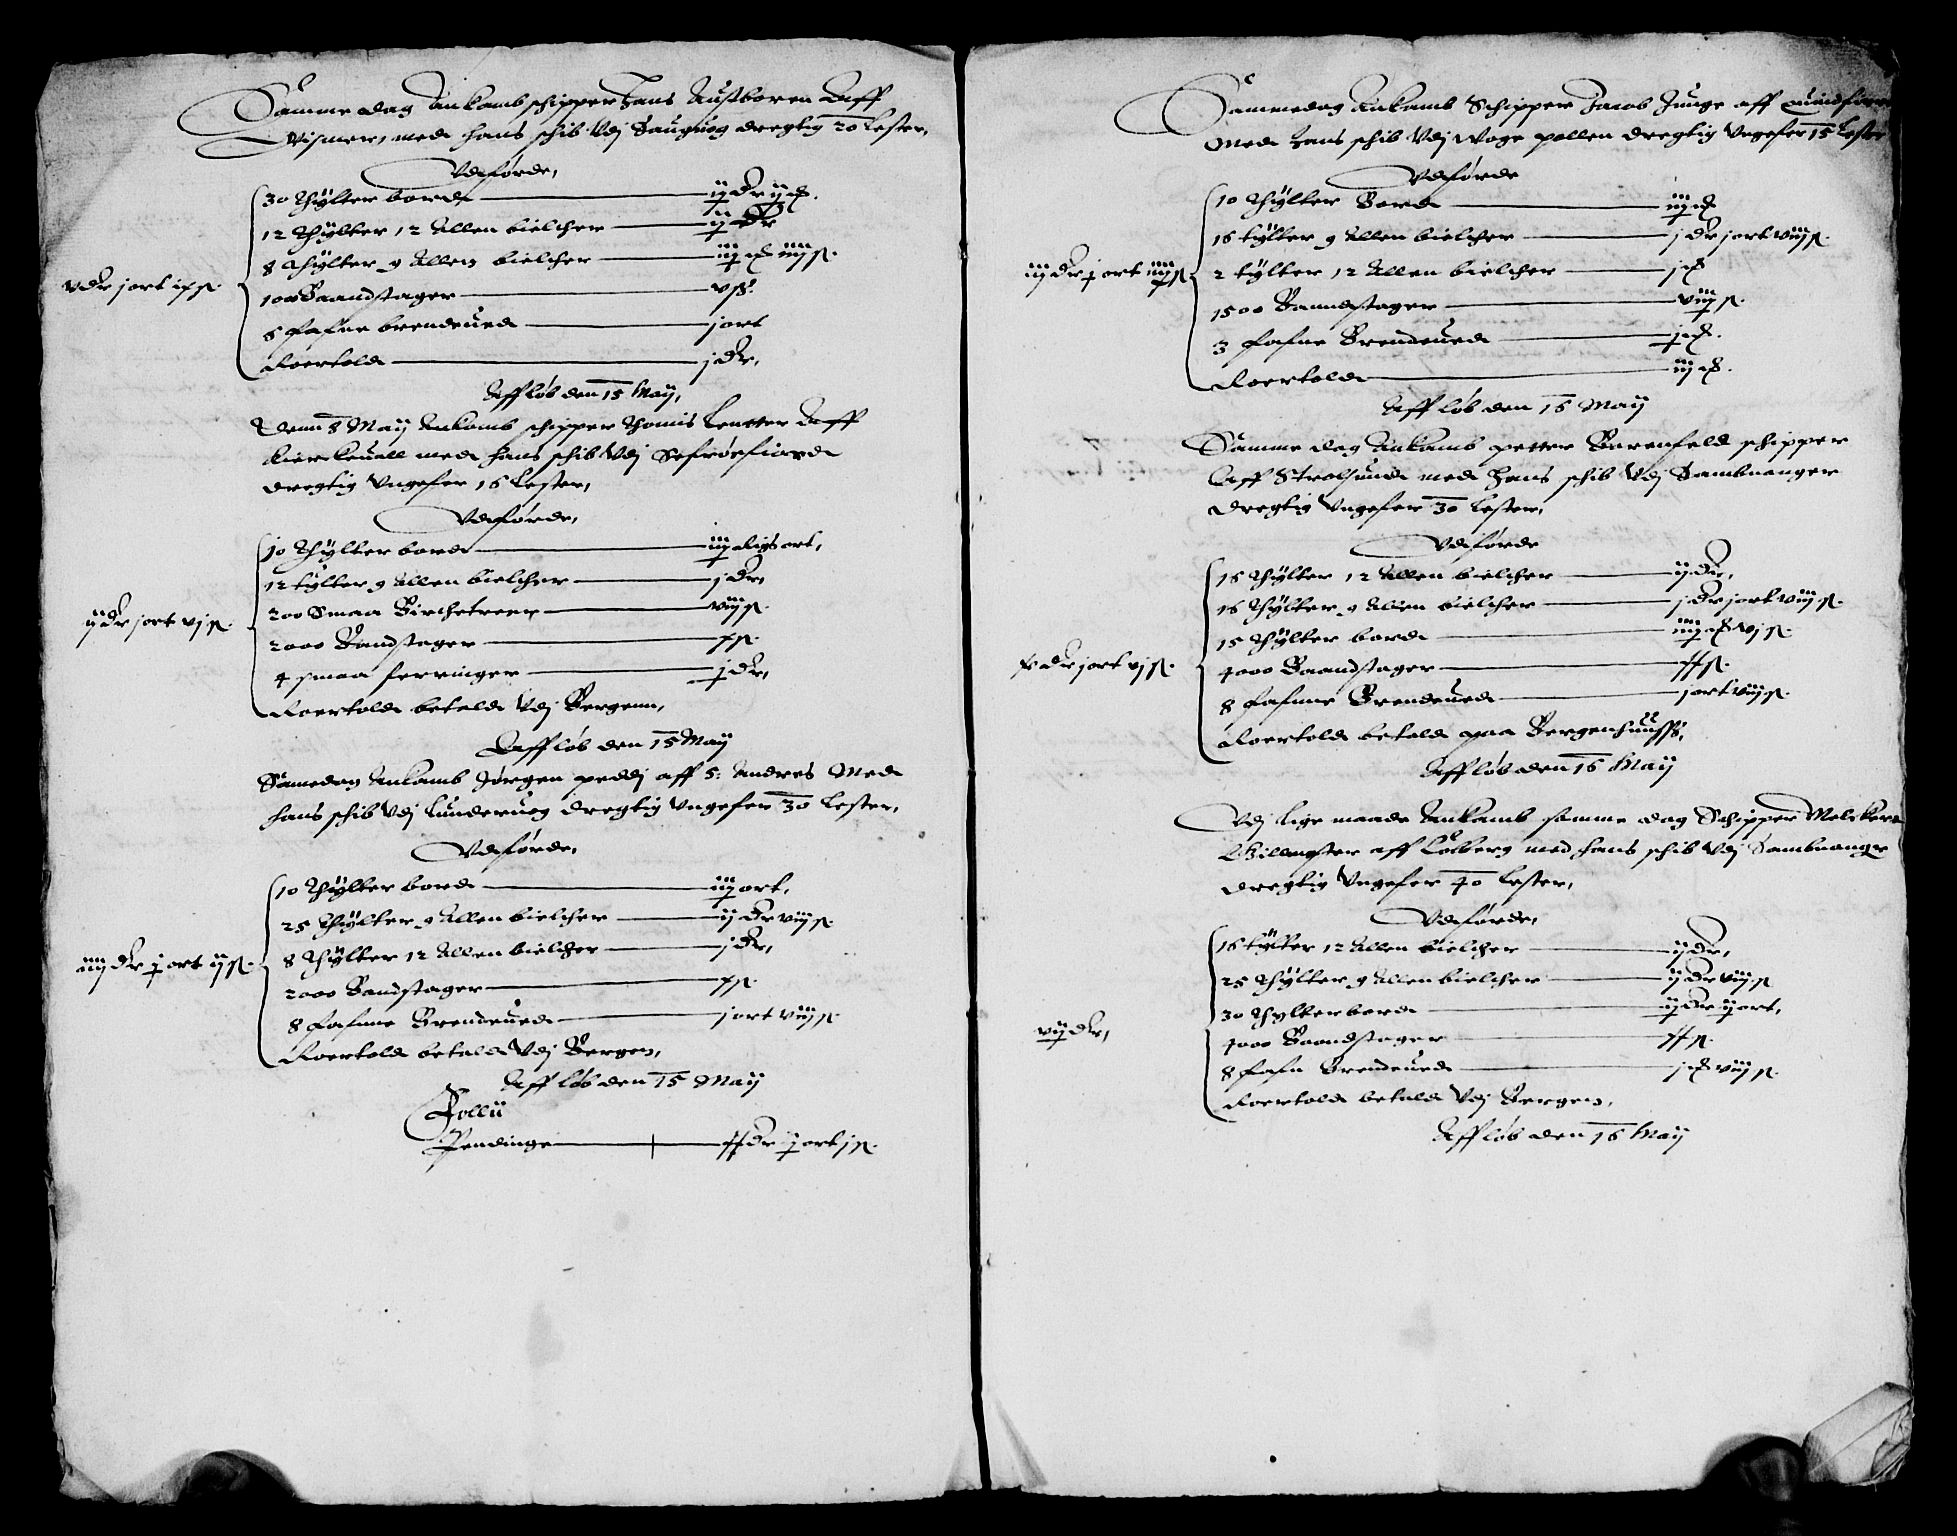 Samme dag Ankamb schipper Hans Austboren Aff
Wismer, med hans schib Vdj Saugvog dregtig 20 Lester,
Vdførde,
30 Thÿlter bord — ij dr ij ₰.
12 Thÿlter 12 Allen bielcher — ij dr
8 Thÿlter 9 Allen bielcher — iij ₰ iiij s.
1000 Baandstager — v s.
6 fafne brendeued — j ort
Roertold — j dr,
v dr j ort ix s.
Aff løb den 15 Maij,
Denn 8 Maij Ankamb schipper Thomis Lentter Aff
Kierkuall med hans schib Vdj Sefrøefiord
dregtig Vngefer 16 Lester,
Vdførde,
10 Thÿlter bord — iij ort,
12 tÿlter 9 Allen bielcher — j dr,
200 Smaa Birchetreer — viij s.
2000 Bandstager — x s.
4 smaa ferringer — j dr,
Roertold betald Vdj Bergenn,
ij dr j ort vj s.
Aff løb den 15 Maij
Samedag Ankamb Jørgen peddj aff S: Andres Med
hans schib Vdj Lunderuog dregtig Vngefer 30 Lester,
Vdførde,
10 Thÿlter bord — iij ort,
25 Thÿlter 9 Allen bielcher — ij dr viij s.
8 Thÿlter 12 Allen bielcher — j dr,
2000 Bandstager — x s.
8 fafnne Brendeued — j ort viij s.
Roertold betald Vdj Bergen,
iiij dr j ort ij s.
Aff løb den 15 Maij
Follii
Pendinge — xx dr j ort j s.
Sammedag Ankamb Schipper Jacob Junge aff
Med Hans schib Vdj Woge pollen dregtig Vngefer 15 Lester
Vdførde
10 Thÿlter Bord — iij ₰
16 tÿlter 9 Allen bielcher — j dr j ort viij s.
2 tÿlter 12 Allen bielcher — j ₰
1500 Banndstager — viij s.
3 fafne Brendeued — j ₰.
Roertold — iij ₰.
iij dr j ort iiij s.
Aff løb den 16 Maij
Samme dag Ankamb petter Barenfeld schipper
Aff Stralsund med Hans schib Vdj Sambnanger
dregtig Vngefer 30 Lester,
Vdførde
16 Thÿlter 12 Allen bielcher — ij dr,
16 Thÿlter 9 Allen bielcher — j dr j ort viij s.
15 Thÿlter bord — iiij ₰ vj s.
4000 Baandstager — xx s.
8 fafnne Brendeued — j ort viij s.
Roertold betald paa Bergenhuuss,
v dr j ort vj s.
Aff løb den 16 Maij
Vdj lige maade Ankamb samme dag Schipper Melckert
aff Colberg med hans schib Vdj Sambnanger
dregtig Vngefer 40 Lester,
Vdførde,
16 tÿlter 12 Allen bielcher — ij dr,
25 Thÿlter 9 Allen bielcher — ij dr viij s
30 Thÿlter bord — ij dr j ort,
4000 Baandstager — xx s.
8 fafn Brendeued — j ₰ viij s.
Roertold betald Vdj Bergen,
vij dr,
Aff løb den 16 Maij